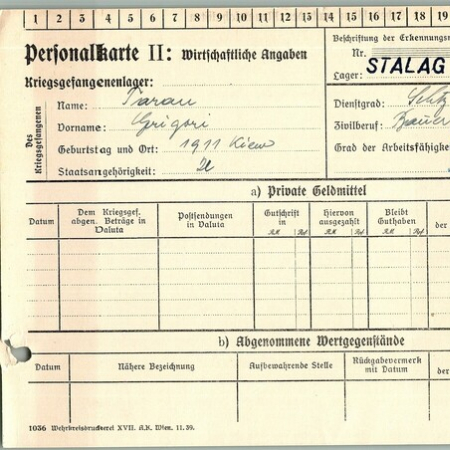 1 2 3 4 5 6 7 8 9 10 11 12 13 14 15 16 17 18 19
Personalkarte II: Wirtschaftliche Angaben
Kriegsgefangenenlager:
Beschriftung der Erkennungs
Nr.
Lager: STALAG
Des Kriegsgefangenen
Name: Taran
Vorname: Grigori
Geburtstag und Ort: 1911 Kiew
Staatsangehörigkeit:
Dienstgrad:
Zivilberuf: Bauer
Grad der Arbeitsfähigke
a) Private Geldmittel
Datum
Dem Kriegsgef. abgen. Beträge in Valuta
Postsendungen in Valuta
Gutschrift in RM Rpf
Hiervon ausgezahlt RM Rpf
Bleibt Guthaben RM Rpf
der
b) Abgenommene Wertgegenstände
Datum
Nähere Bezeichnung
Aufbewahrende Stelle
Rückgabevermerk mit Datum
der
1036 Wehrkreisdruckerei XVII. A.K. Wien. 11.39.